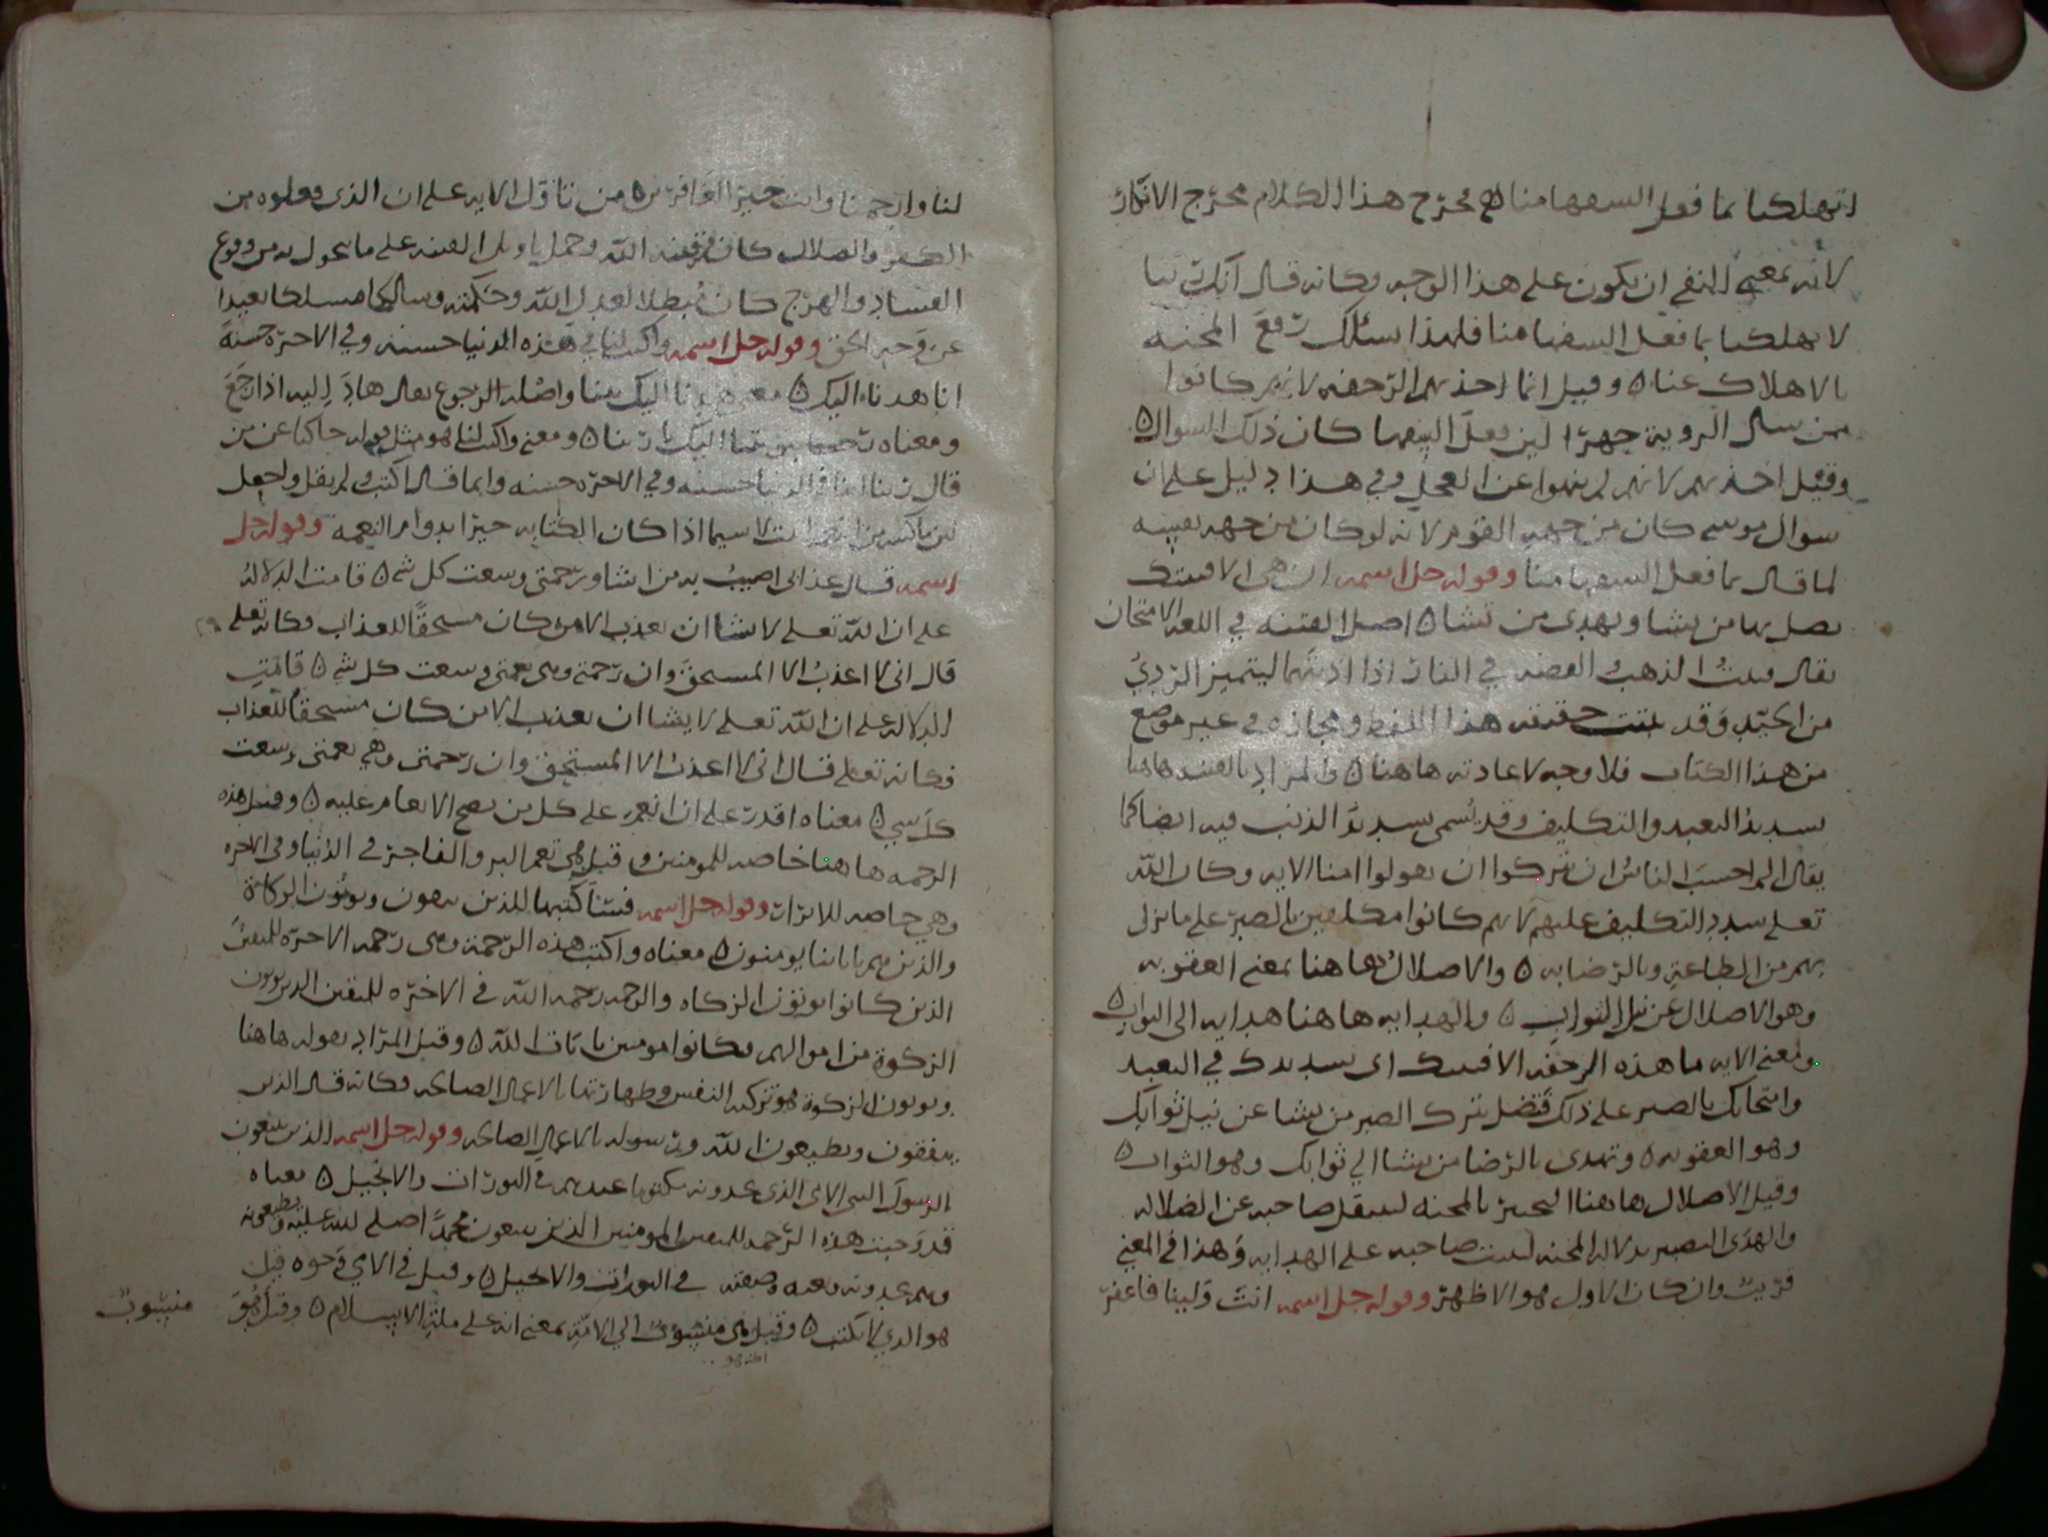 اتهلكنا بما فعل السفها منا ٥ مخرج هذا الكلام مخرج الانكار
لانه بمعنى النفي ان يكون على هذا الوجه وكانه قال انك ربنا
لا تهلكنا بما فعل السفها منا فلهذا نسئلك رفع المحنه
بالاهلاك عنا ٥ وقيل انما اخذتهم الرجفه لانهم كانوا
ممن سال الرويه جهرا لين فعل السفها كان ذلك السوال ٥
وقيل اخذتهم لانهم لم ينهوا عن العجل وفي هذا دليل على ان
سوال موسى كان من جهه القوم لانه لو كان من جهه نفسه
لما قال بما فعل السفها منا وقوله جل اسمه ان هي الا فتنتك
تضل بها من تشا وتهدى من تشا ٥ اصل الفتنه في اللغه الامتحان
يقال فتنت الذهب الفضه في النار اذا اذبتهما ليتميز الردي
من الجيد وقد بينت حقيقه هذا اللفظ ومجازه في غير موضع
من هذا الكتاب فلا وجه لاعادته هاهنا ٥ والمراد بالفتنه هاهنا
تشديد التعبد والتكليف وقد يسمى تشديد الذنب فيه ايضا كما
يقال الم احسب الناس ان يتركوا ان يقولوا امنا الايه وكان الله
تعلى شدد التكليف عليهم لانهم كانوا مكلفين بالصبر على ما نزل
بهم من الطاعة وبالرضا به ٥ والاضلال هاهنا بمعنى العقوبه
وهو الاضلال عن نيل الثواب ٥ والهدايه هاهنا هدايه الى الثواب ٥
ومعنى الايه ما هذه الرجفه الا فتنتك اى تشديدك في التعبد
وامتحانك بالصبر على ذلك فتضل بترك الصبر من تشا عن نيل ثوابك
وهو العقوبه ٥ وتهدى بالرضا من تشا الي ثوابك وهو الثواب ٥
وقيل الاضلال هاهنا التحير بالمحنه لينتقل صاحبه عن الضلاله
والهدى التبصير بدلاله المحنه ليثبت صاحبه على الهدايه وهذا في المعنى
قريب وان كان الاول هو الاظهر وقوله جل اسمه انت ولينا فاغفر
لنا وارحمنا وانت خير الغافرين ٥ من تاول الايه على ان الذى فعلوه من
الكفر والضلال كان فتنه الله وحمل تاويل الفتنه على ما تحول به من وقوع
الفساد والهرج كان مبطلا لعدل الله وحكمته وسالكا مسلكا بعيدا
عن وجه الحق وقوله جل اسمه واكتب لنا في هذه الدنيا حسنه وفي الاخرة حسنة
انا هدنا اليك ٥ معنى هدنا اليك تبنا واصله الرجوع يقال هاد اليه اذا رجع
ومعناه رجعنا بتوبتنا اليك يا ربنا ٥ ومعنى واكتب لنا هو مثل قوله حاكيا عن من
قال ربنا اتنا في الدنيا حسنه وفي الاخرة حسنه وانما قال اكتب ولم يقل واجعل
لان الكتبه اثبت لا سيما اذا كان الكتابه خبرا بدوام النعمه وقوله جل
اسمه قال عذابى اصيب به من اشا ورحمتى وسعت كل شى ٥ قامت الدلاله
على ان الله تعلى لا يشا ان يعذب الا من كان مستحقا للعذاب وكانه تعلى
قال انى لا اعذب الا المستحق وان رحمتى وهى نعمتى وسعت كل شى ٥ قامت
الدلاله على ان الله تعلى لا يشا ان يعذب الا من كان مستحقا للعذاب
فكانه تعلى قال انى لا اعذب الا المستحق وان رحمتى وهي نعمتى وسعت
كل شي ٥ معناه اقدر على ان انعم على كل من يصح الانعام عليه ٥ وقيل هذه
الرحمه هاهنا خاصه للمومنين وقيل هى تعم البر والفاجر في الدنيا وفى الاخره
وهي خاصه للابرار وقوله جل اسمه فسأكتبها للذين يتقون ويوتون الزكاة
والذين هم باياتنا يومنون ٥ معناه واكتب هذه الرحمة وهى رحمه الاخرة للمتقين
الذين كانوا يوتون الزكاه والرحمه رحمه الله في الاخره للمتقين الذين يوتون
الزكوة من اموالهم وكانوا مومنين بايات الله ٥ وقيل المراد بقوله هاهنا
ويوتون الزكوة هو تزكيه النفس وطهارتها بالاعمال الصالحه وكانه قال الذين
يتقون ويطيعون الله ورسوله بالاعمال الصالحه وقوله جل اسمه الذين يتبعون
الرسول النبى الامى الذى يجدونه مكتوبا عندهم في التورات والانجيل ٥ معناه
قد وجبت هذه الرحمه للمتقين المومنين الذين يتبعون محمدا صلى الله عليه ويطيعونه
وهم يجدونه بنعته وصفته في التورات والانجيل ٥ وقيل في الامي وجوه قيل
هو الذي لا يكتب ٥ وقيل هى منسوب الي الامة بمعنى انه على ملة الاسلام ٥ وقيل هو
منسوب